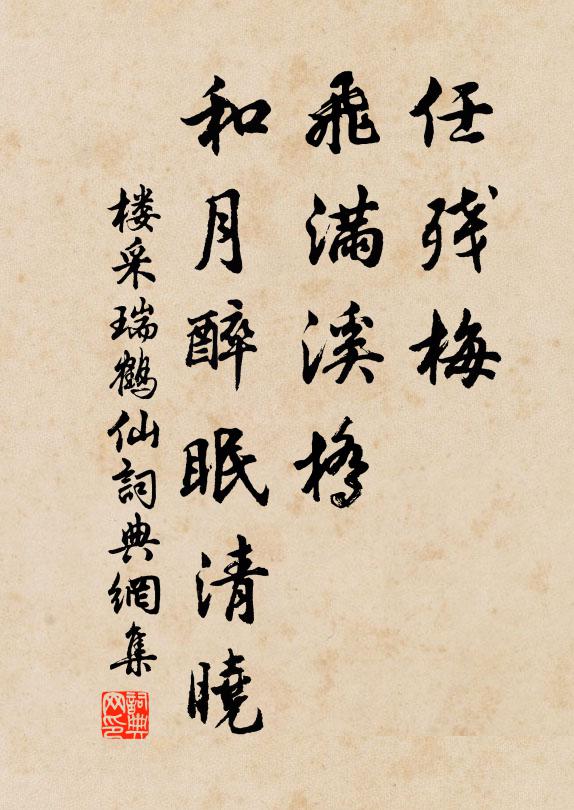 任残梅
飛滿溪橋
和月醉眠清曉
楼采瑞鶴仙詞典網集
詞典网印